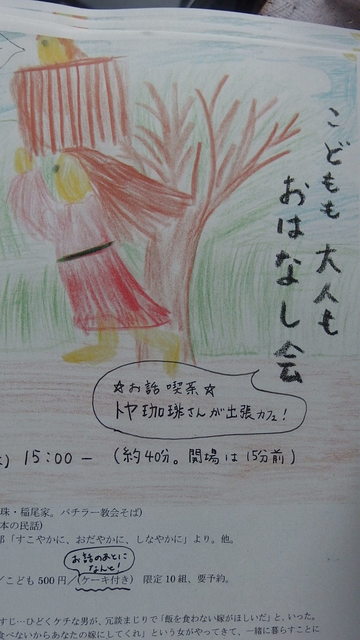 こどもも大人も
おはなし会
☆お話喫茶☆
トヤ珈琲さんが出張カフェ!
) 15:00 – (約40分。開場は15分前)
珠・稲尾家。バチラー教会そば)
本の民話)
「すこやかに、おだやかに、しなやかに」より。他。
お話のあとに
なんと!
/こども500円/(ケーキ付き) 限定10組、要予約。
すじ…ひどくケチな男が、冗談まじりで「飯を食わない嫁がほしいだ」と、いった。
食べないからあなたの嫁にしてくれ」という女がやってきて、一緒に暮らすことに